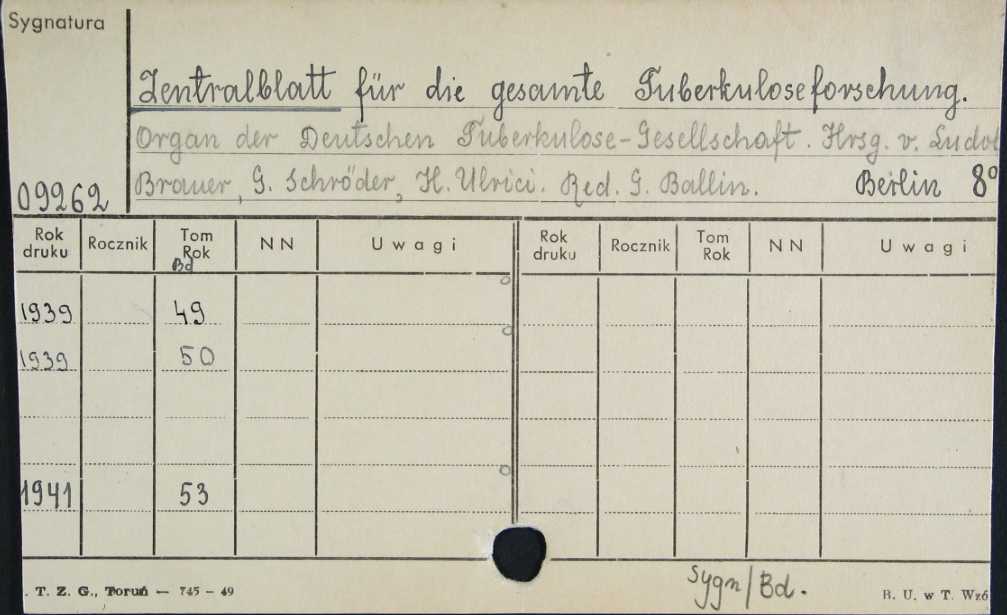 Sygnatura
Zentralblatt für die gesamte Tuberkuloseforschung.
Organ der Deutschen Tuberkulose-Gesellschaft. Hrsg. v. Ludol
Brauer, G. Schröder, H. Ulrici. Red. G. Ballin. Berlin 8°
09262
Rok druku Rocznik Tom Rok NN Uwagi Rok druku Rocznik Tom Rok NN Uwagi
Bd
1939 49
1939 50
1941 53
Sygn/Bd.
. T. Z. G., Toruń — 745 - 49 B. U. w T. Wz6